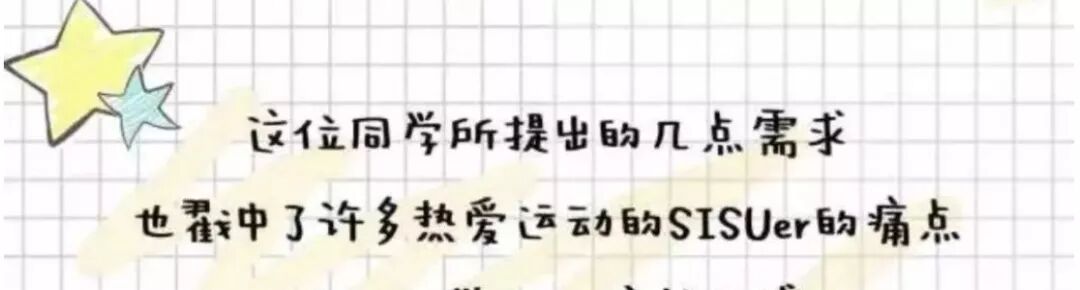 这位同学所提出的几点需求
也戳中了许多热爱运动的SISUer的痛点